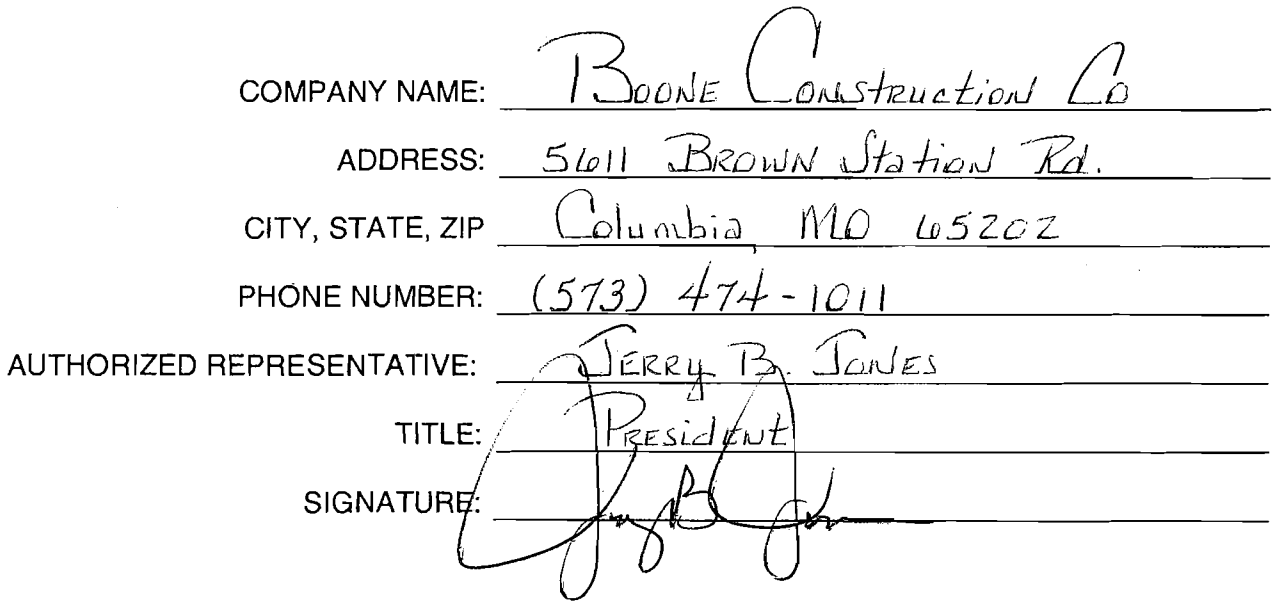 COMPANY NAME: Boone Construction Co
ADDRESS: 5611 Brown Station Rd.
CITY, STATE, ZIP Columbia, MO 65202
PHONE NUMBER: (573) 474-1011
AUTHORIZED REPRESENTATIVE: Jerry B. Jones
TITLE: President
SIGNATURE: Jerry B Jones